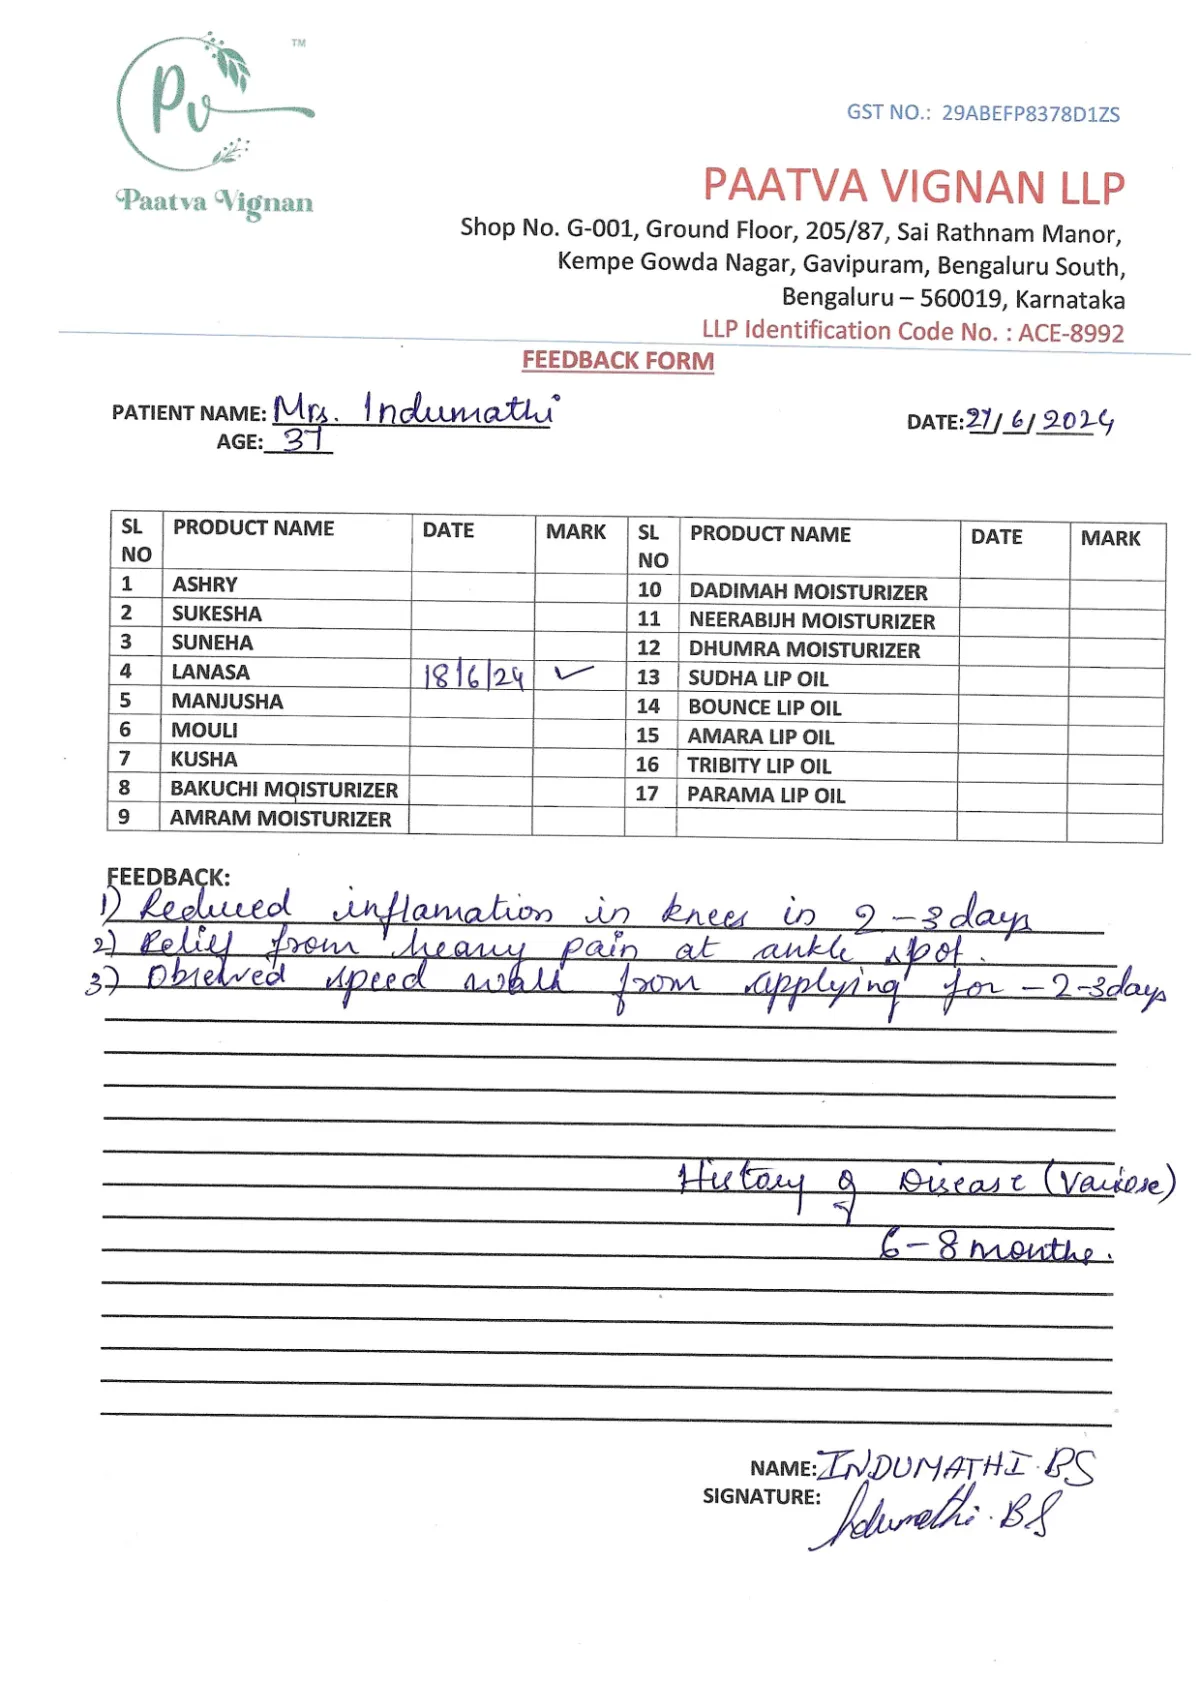 TM
Pv
Paatva Vignan
GST NO.: 29ABEFP8378D1ZS
PAATVA VIGNAN LLP
Shop No. G-001, Ground Floor, 205/87, Sai Rathnam Manor,
Kempe Gowda Nagar, Gavipuram, Bengaluru South,
Bengaluru – 560019, Karnataka
LLP Identification Code No. : ACE-8992
FEEDBACK FORM
PATIENT NAME: Mrs. Indumathi DATE: 27/6/2024
AGE: 37
SL NO PRODUCT NAME DATE MARK SL NO PRODUCT NAME DATE MARK
1 ASHRY 10 DADIMAH MOISTURIZER
2 SUKESHA 11 NEERABIJH MOISTURIZER
3 SUNEHA 12 DHUMRA MOISTURIZER
4 LANASA 18/6/24 ✓ 13 SUDHA LIP OIL
5 MANJUSHA 14 BOUNCE LIP OIL
6 MOULI 15 AMARA LIP OIL
7 KUSHA 16 TRIBITY LIP OIL
8 BAKUCHI MOISTURIZER 17 PARAMA LIP OIL
9 AMRAM MOISTURIZER
FEEDBACK:
1) Reduced inflamation in knees in 2-3 days
2) Relief from heavy pain at ankle spot.
3) Observed speed walk from applying for - 2-3days
History of Disease (Varicose)
6-8 months.
NAME: INDUMATHI. BS
SIGNATURE: Indumathi. BS